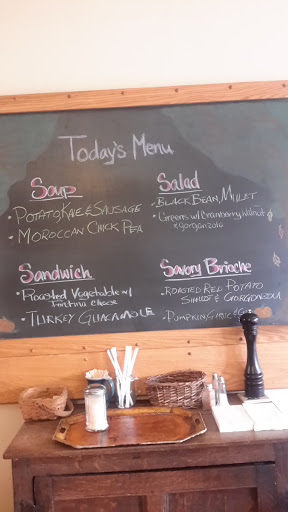 Today's Menu
Soup
• Potato Kale & Sausage
• Moroccan Chick Pea
Salad
• Black Bean, Millet
• Greens w/ Cranberry, Walnut &
Gorgonzola
Sandwich
• Roasted Vegetable w/
Fontina Cheese
• Turkey Guacamole
Savory Brioche
• Roasted Red Potato
& Gorgonzola
• Pumpkin,